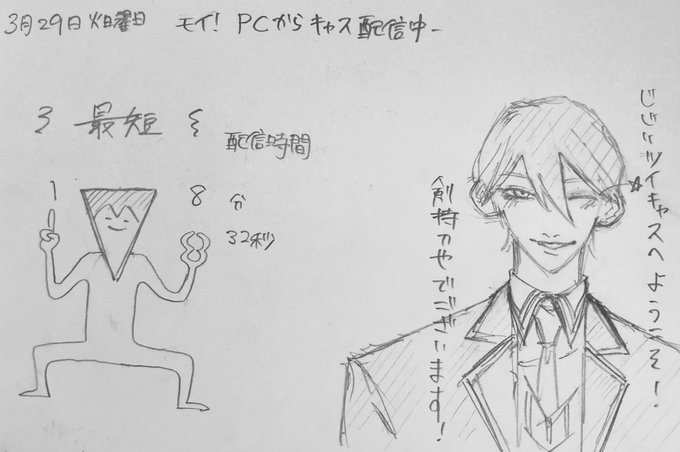 3月29日 火曜日 モイ! PCからキャス配信中-
3 最短 ミ
配信時間
18分
32秒
じじいツイキャスへようこそ!
剣持刀也でございます!